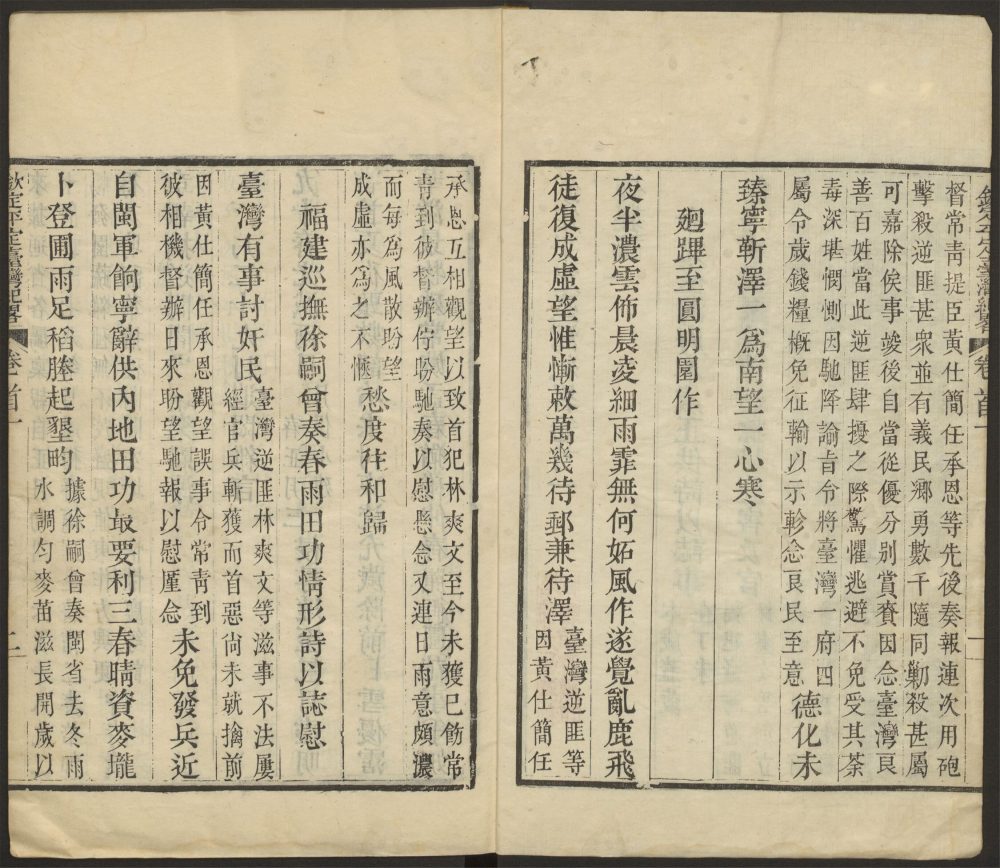 欽定平定臺灣紀畧 卷首一
督常靑提臣黃仕簡任承恩等先後奏報連次用砲
擊殺逆匪甚衆並有義民鄉勇數千隨同勦殺甚屬
可嘉除俟事竣後自當從優分別賞賚因念臺灣良
善百姓當此逆匪肆擾之際驚懼逃避不免受其荼
毒深堪憫惻因馳降諭旨令將臺灣一府四
屬今歲錢糧概免征輸以示軫念良民至意 德化未
臻寧斬澤一爲南望一心寒
廻蹕至圓明園作
夜半濃雲佈晨淩細雨霏無何妬風作遂覺亂鹿飛
徒復成虛望惟慚敕萬幾待郵兼待澤 臺灣逆匪等
因黃仕簡任
承恩互相觀望以致首犯林爽文至今未獲已飭常
靑到彼督辦佇盼馳奏以慰懸念又連日雨意頗濃
而每爲風散盼望
成虛亦爲之不愜 愁度往和歸
福建巡撫徐嗣曾奏春雨田功情形詩以誌慰
臺灣有事討奸民 臺灣逆匪林爽文等滋事不法屢
經官兵斬獲而首惡尙未就擒前
因黃仕簡任承恩觀望誤事令常靑到
彼相機督辦日來盼望馳報以慰厪念 未免發兵近
自閩軍餉寧辭供內地田功最要利三春晴資麥壠
卜登圃雨足稻塍起墾畇 據徐嗣曾奏閩省去冬雨
水調勻麥苗滋長開歲以
欽定平定臺灣紀畧 卷首一 二